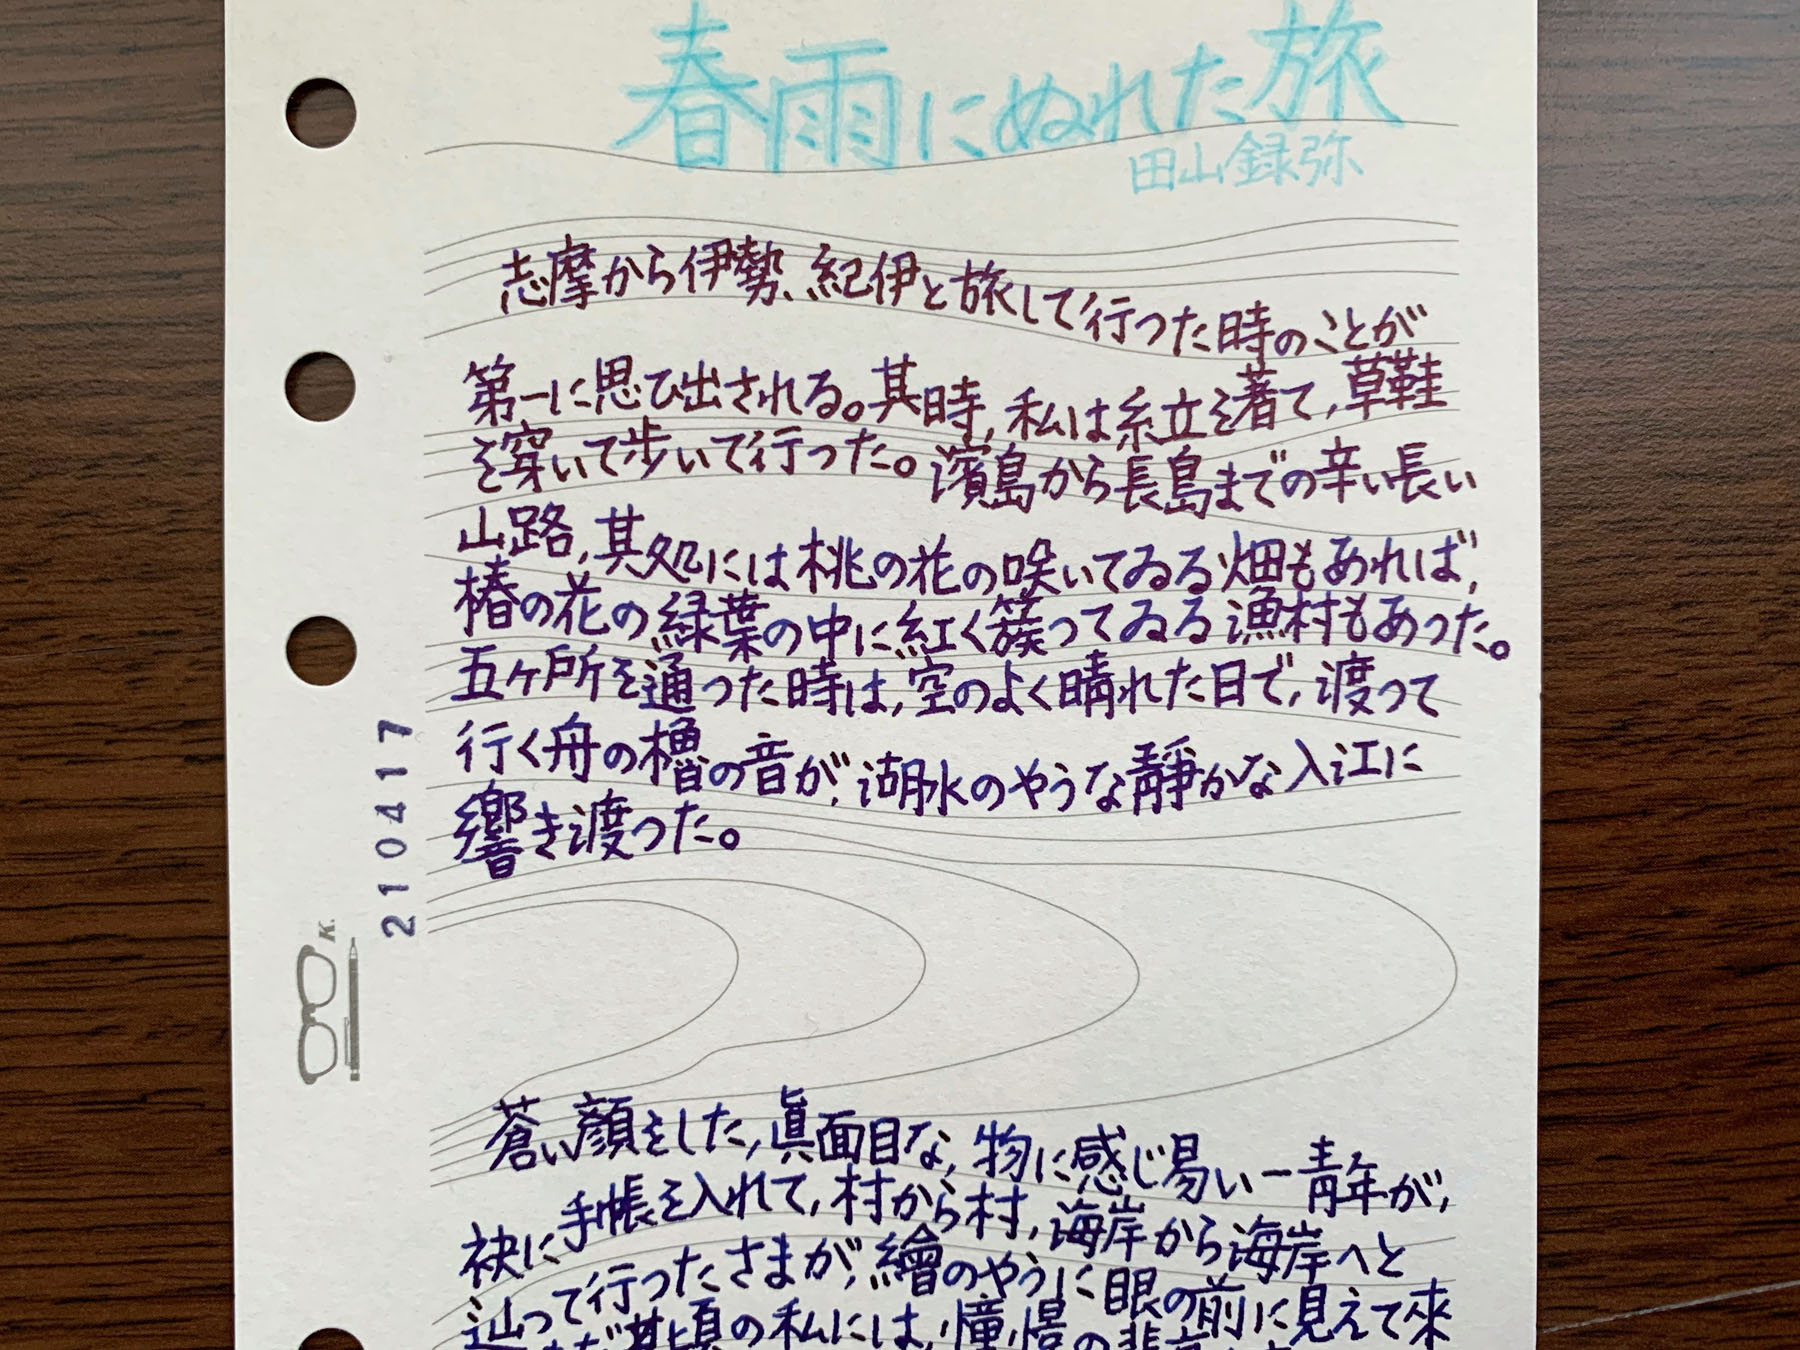 春雨にぬれた旅
田山録弥
志摩から伊勢、紀伊と旅して行つた時のことが
第一に思ひ出される。其時、私は糸立を着て、草鞋
を穿いて歩いて行つた。濱島から長島までの辛い長い
山路、其処には桃の花の咲いてゐる畑もあれば、
椿の花の緑葉の中に紅く簇つてゐる漁村もあつた。
五ヶ所を通つた時は、空のよく晴れた日で、渡つて
行く舟の櫓の音が、湖水のやうな静かな入江に
響き渡つた。
210417
K.
蒼い顔をした、眞面目な、物に感じ易い一青年が、
袂に手帳を入れて、村から村、海岸から海岸へと
辿つて行つたさまが、繪のやうに眼の前に見えて來
其頃の私には、憧憬の